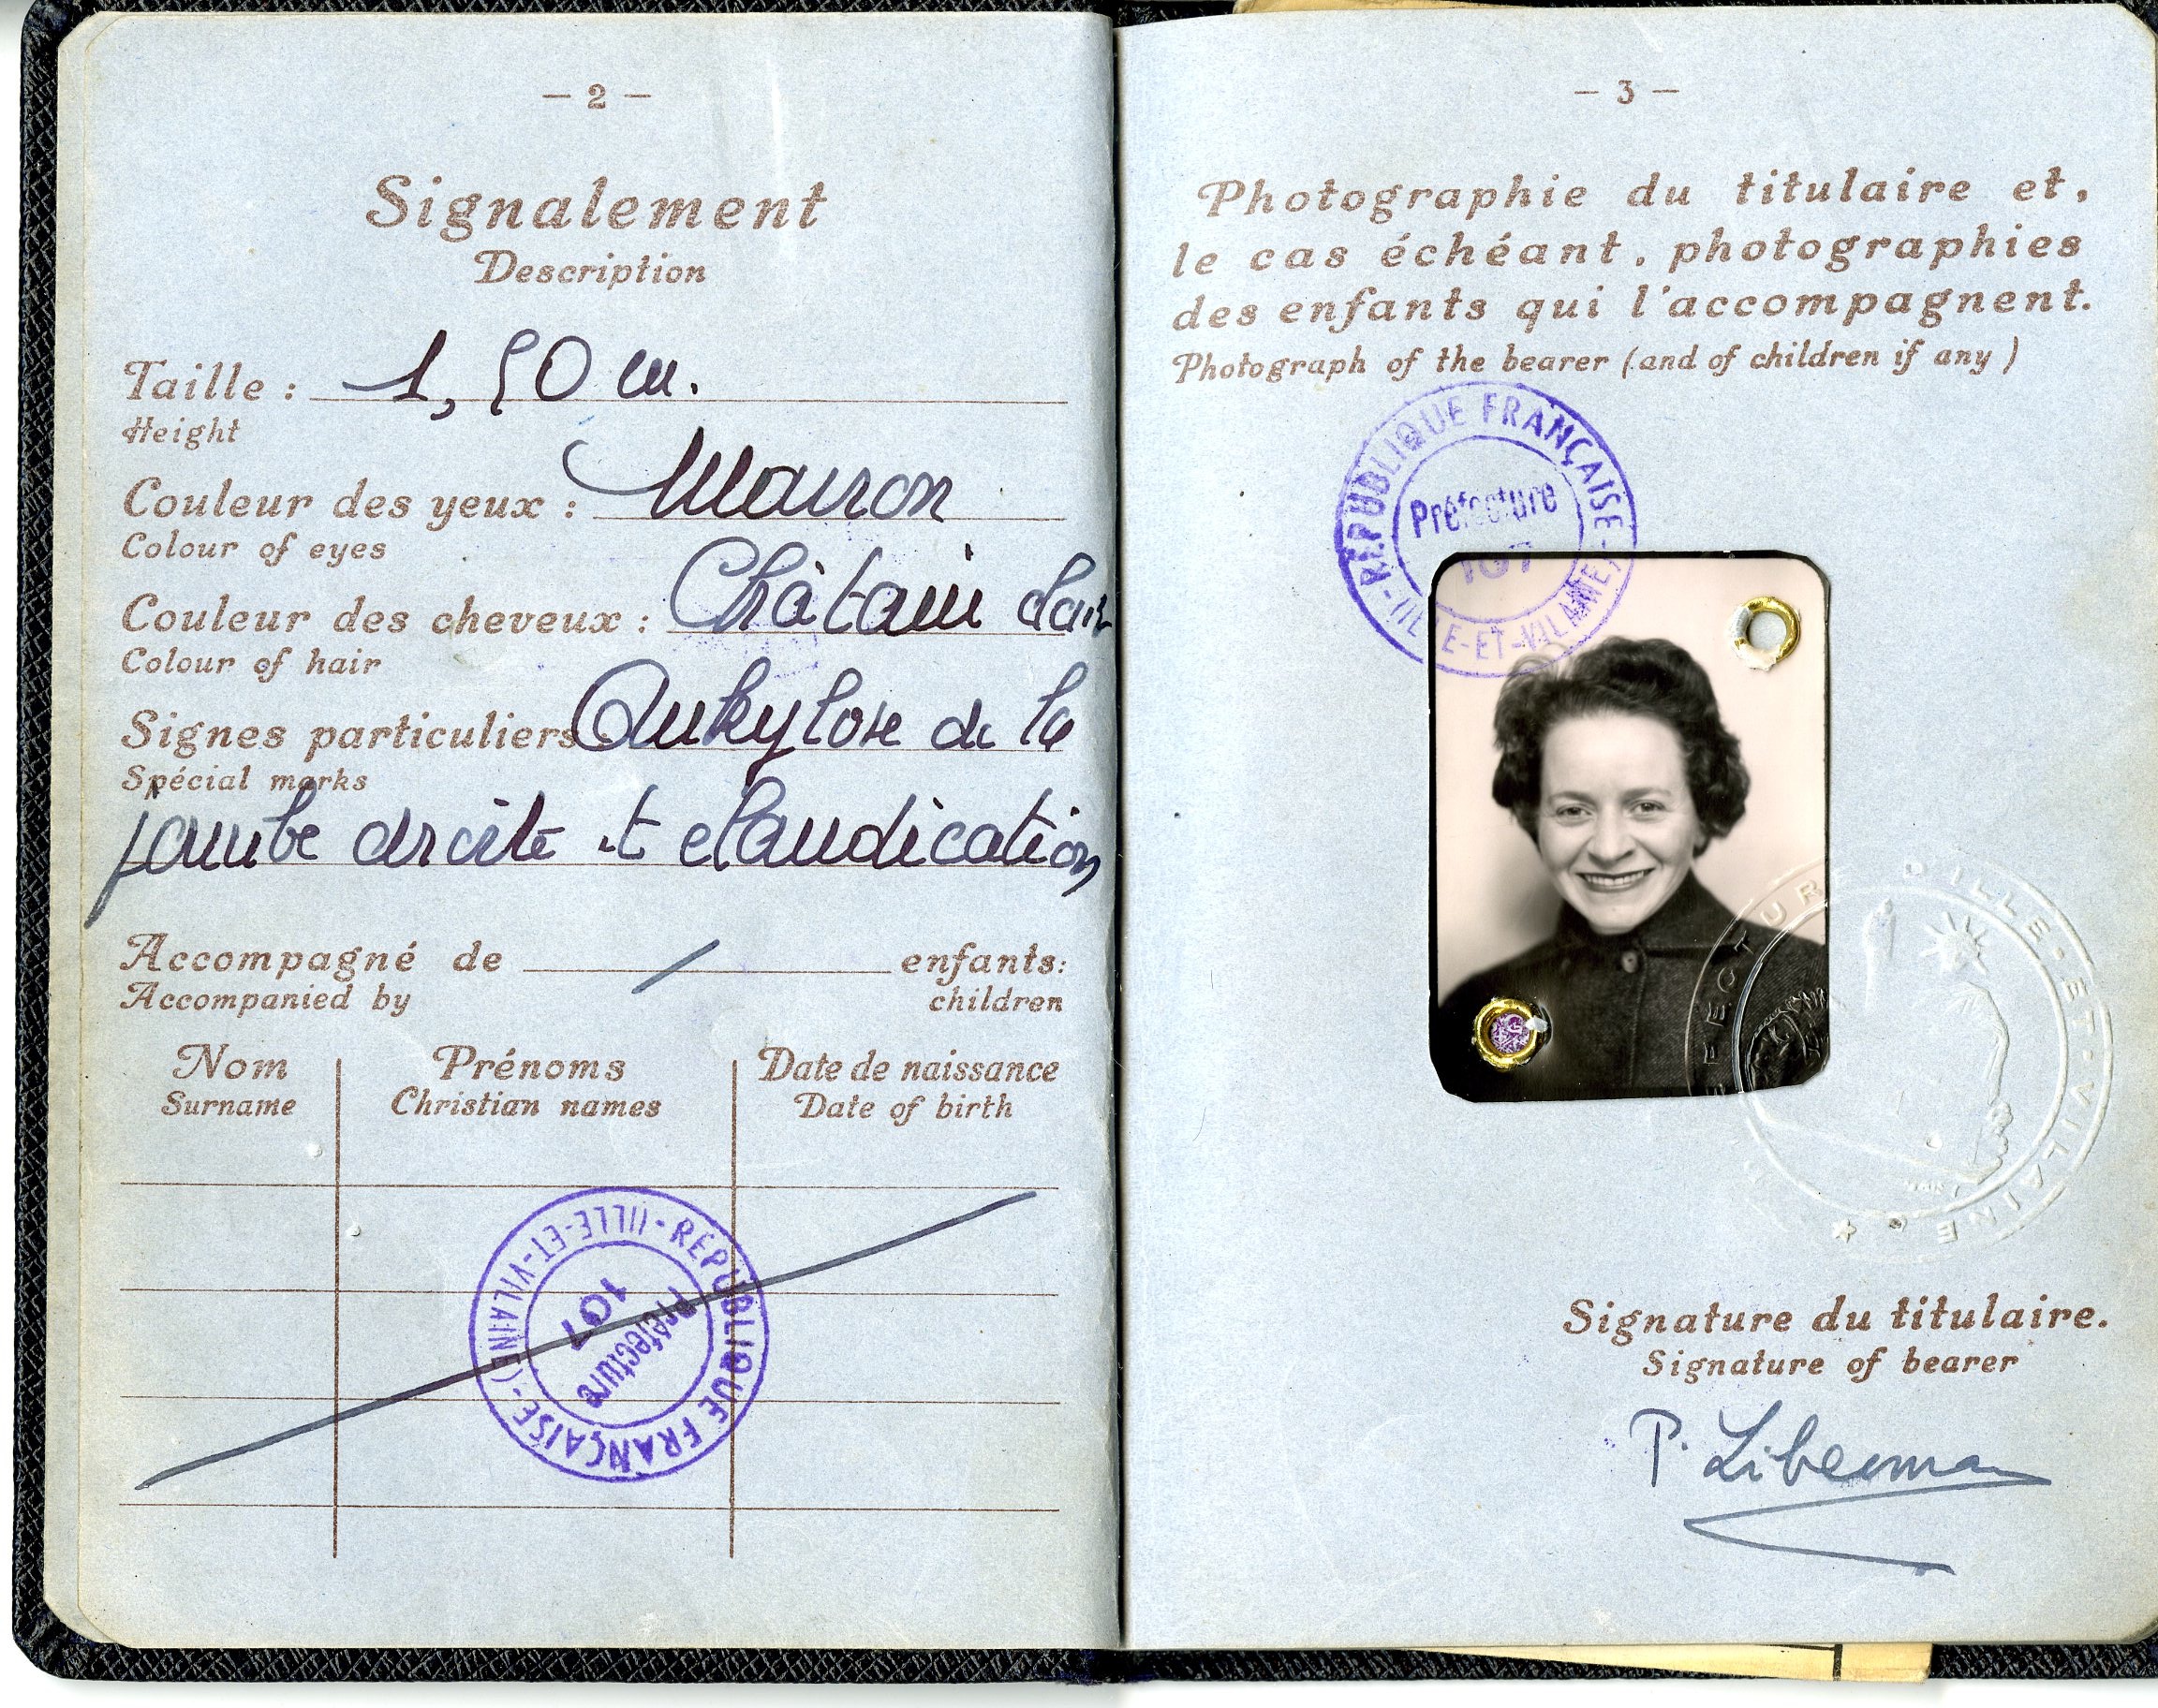 — 2 —
Signalement
Description
Taille : 1,50 m.
Height
Couleur des yeux : Marron
Colour of eyes
Couleur des cheveux : Châtain clair
Colour of hair
Signes particuliers Ankylose de la
Spécial marks
jambe droite et claudication
Accompagné de / enfants:
Accompanied by children
Nom Prénoms Date de naissance
Surname Christian names Date of birth
RÉPUBLIQUE FRANÇAISE - (ILLE-ET-VILAINE) -
Préfecture
107
— 3 —
Photographie du titulaire et,
le cas échéant, photographies
des enfants qui l'accompagnent.
Photograph of the bearer (and of children if any)
RÉPUBLIQUE FRANÇAISE - (ILLE-ET-VILAINE) -
Préfecture
107
PRÉFECTURE D'ILLE-ET-VILAINE
Signature du titulaire.
Signature of bearer
P. Liberman